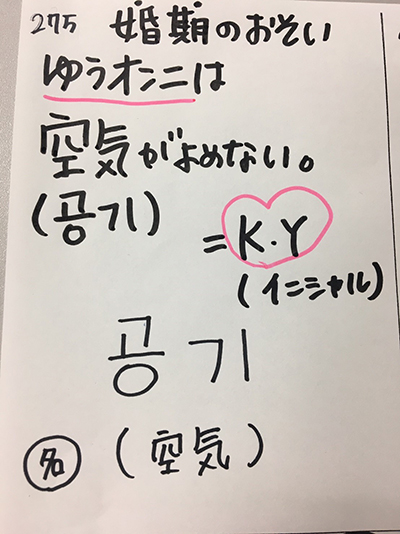 275 婚期のおそい
ゆうオンニは
空気がよめない。
(공기)
= K・Y
(イニシャル)
공기
名 (空気)